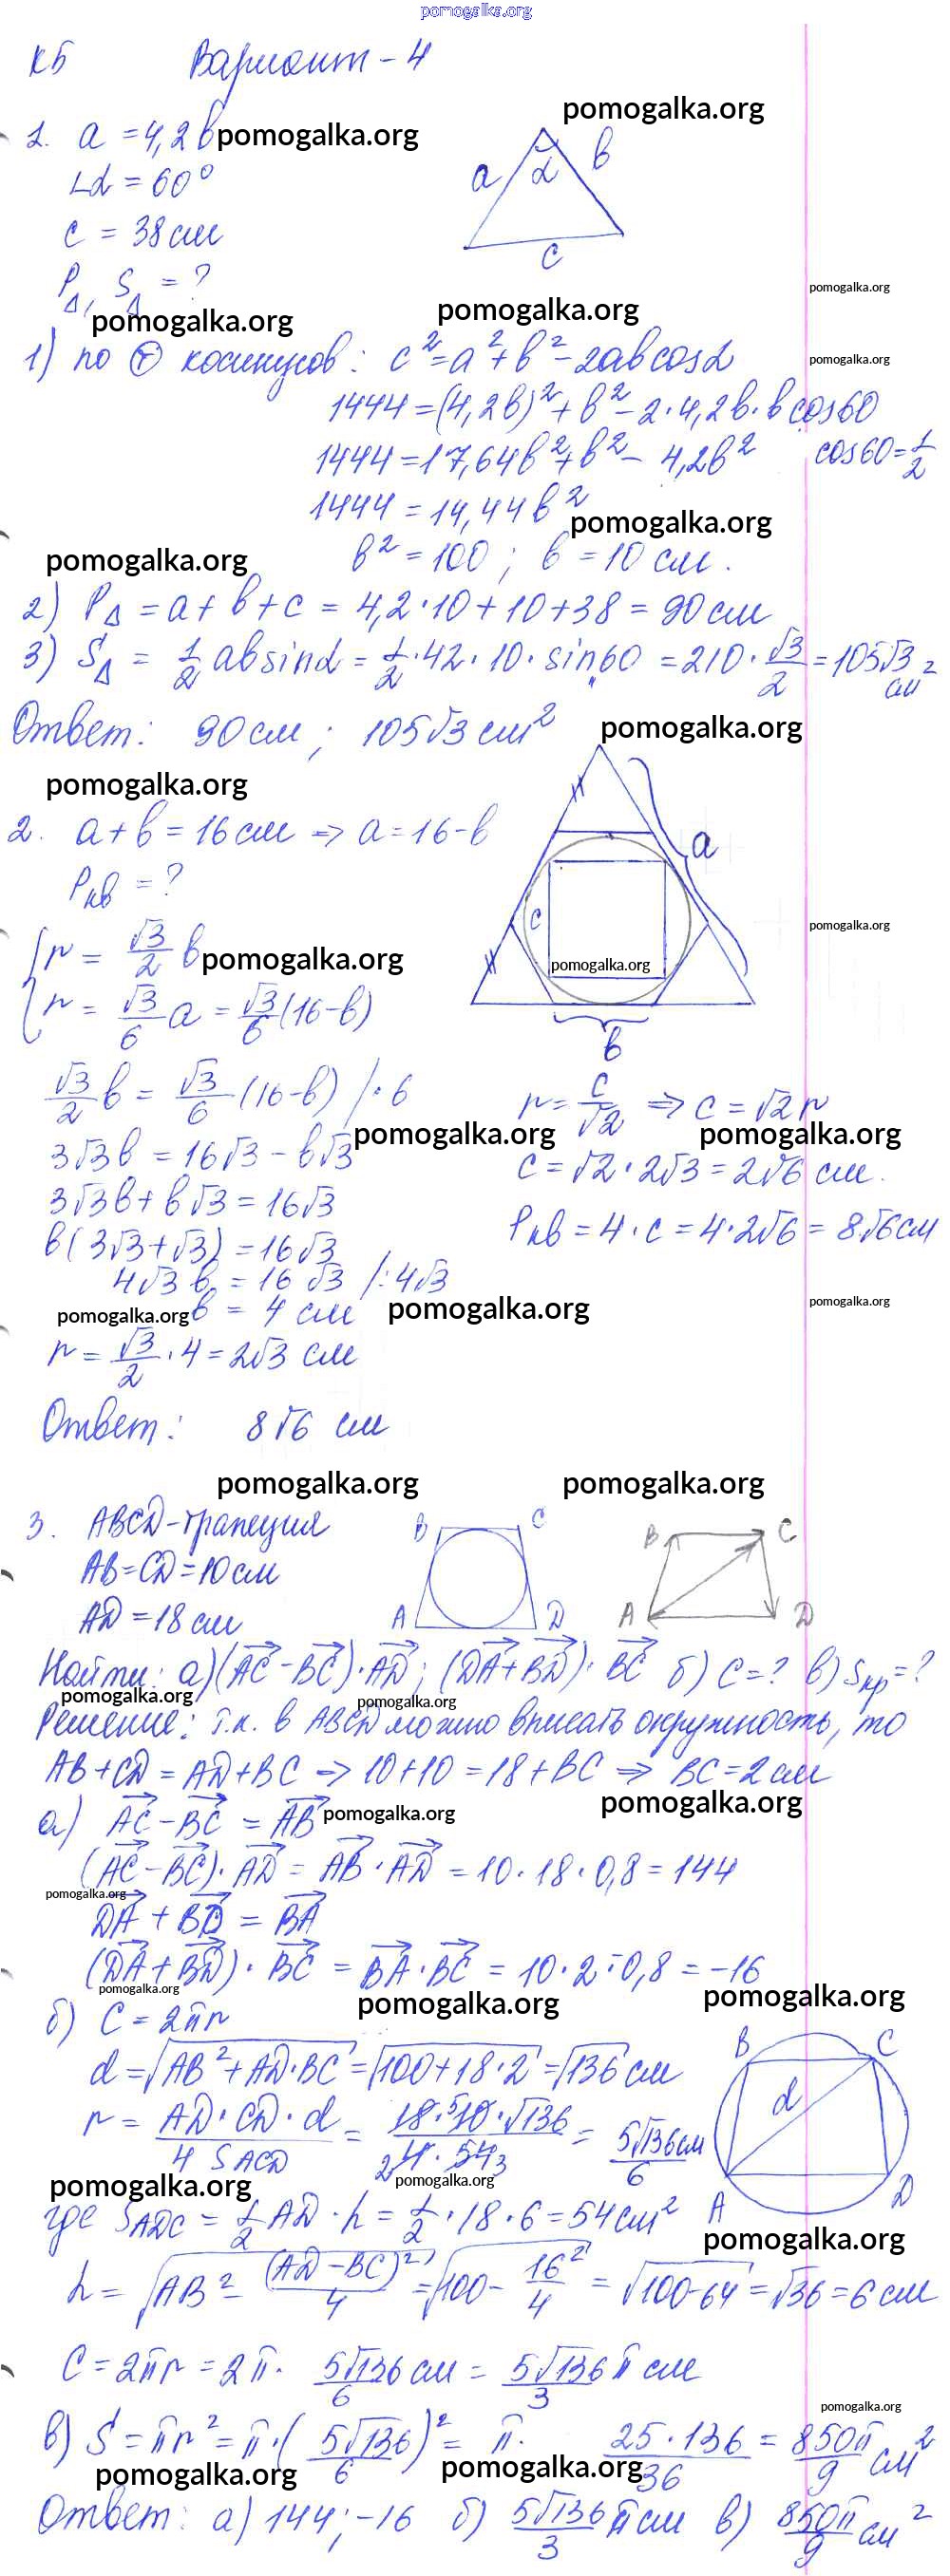 pomogalka.org
К5 Вариант - 4
pomogalka.org
1. a = 4,2b pomogalka.org
a α b
∠α = 60°
c = 38 см
c
P△, S△ = ?
pomogalka.org
pomogalka.org pomogalka.org
1) по т косинусов: c² = a² + b² - 2ab cosα
pomogalka.org
1444 = (4,2b)² + b² - 2·4,2b·b cos60
1444 = 17,64b² + b² - 4,2b² cos60 = 1/2
1444 = 14,44b²
pomogalka.org
pomogalka.org b² = 100 ; b = 10 см.
2) P△ = a + b + c = 4,2·10 + 10 + 38 = 90 см
3) S△ = 1/2 ab sinα = 1/2·42·10·sin60 = 210·√3/2 = 105√3 см²
Ответ: 90 см ; 105√3 см²
pomogalka.org
pomogalka.org
2. a + b = 16 см ⇒ a = 16 - b
a
Pкв = ?
c
pomogalka.org
{ r = √3/2 b pomogalka.org
pomogalka.org
r = √3/6 a = √3/6 (16 - b)
b
√3/2 b = √3/6 (16 - b) /·6
r = c/√2 ⇒ c = √2 r
pomogalka.org pomogalka.org
3√3b = 16√3 - b√3
c = √2·2√3 = 2√6 см.
3√3b + b√3 = 16√3
Pкв = 4·c = 4·2√6 = 8√6 см
b(3√3 + √3) = 16√3
4√3 b = 16√3 /:4√3
pomogalka.org b = 4 см pomogalka.org
pomogalka.org
r = √3/2·4 = 2√3 см
Ответ: 8√6 см
pomogalka.org pomogalka.org
3. ABCD - трапеция
B C B C
AB = CD = 10 см
AD = 18 см
A D A D
Найти: а) (AC - BC)·AD; (DA + BD)·BC б) C = ? в) Sкр = ?
pomogalka.org pomogalka.org
Решение: т.к. в ABCD можно вписать окружность, то
AB + CD = AD + BC ⇒ 10 + 10 = 18 + BC ⇒ BC = 2 см
pomogalka.org
а) AC - BC = AB pomogalka.org
(AC - BC)·AD = AB·AD = 10·18·0,8 = 144
pomogalka.org
DA + BD = BA
(DA + BD)·BC = BA·BC = 10·2·-0,8 = -16
pomogalka.org pomogalka.org pomogalka.org
б) C = 2πr
B C
d = √AB² + AD·BC = √100 + 18·2 = √136 см
d
r = AD·CD·d / 4 SACD = 18·10·√136 / 4·54 = 5√136 см / 6
pomogalka.org pomogalka.org
A D
где SADC = 1/2 AD·h = 1/2·18·6 = 54 см²
pomogalka.org
h = √AB² - (AD - BC)²/4 = √100 - 16²/4 = √100 - 64 = √36 = 6 см
C = 2πr = 2π·5√136 см/6 = 5√136/3 π см
pomogalka.org
в) S = πr² = π·(5√136/6)² = π·25·136/36 = 850π/9 см²
pomogalka.org pomogalka.org
Ответ: а) 144; -16 б) 5√136/3 π см в) 850π/9 см²